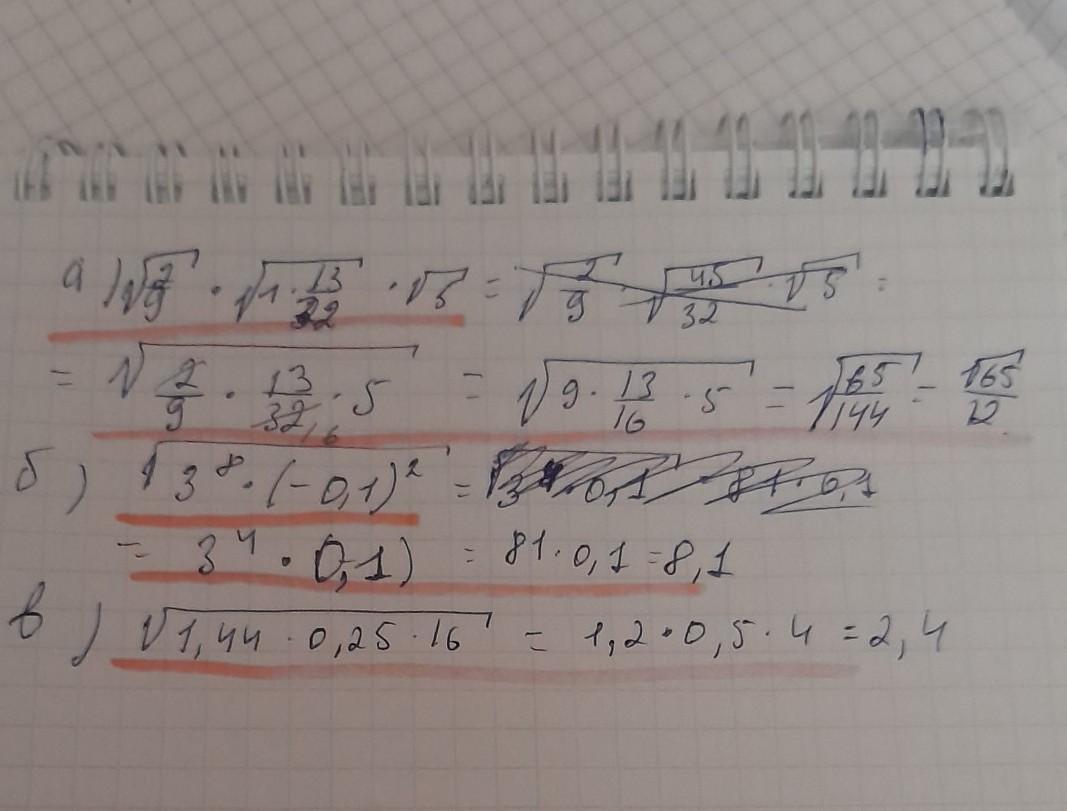 а) √2/9 · √1·13/32 · √5 = √2/9 · √45/32 · √5 =
= √2/9 · 13/32 16 · 5 = √9 · 13/16 · 5 = √65/144 = √65/12
б) √3⁸ · (-0,1)² =
= 3⁴ · 0,1) = 81 · 0,1 = 8,1
в) √1,44 · 0,25 · 16 = 1,2 · 0,5 · 4 = 2,4